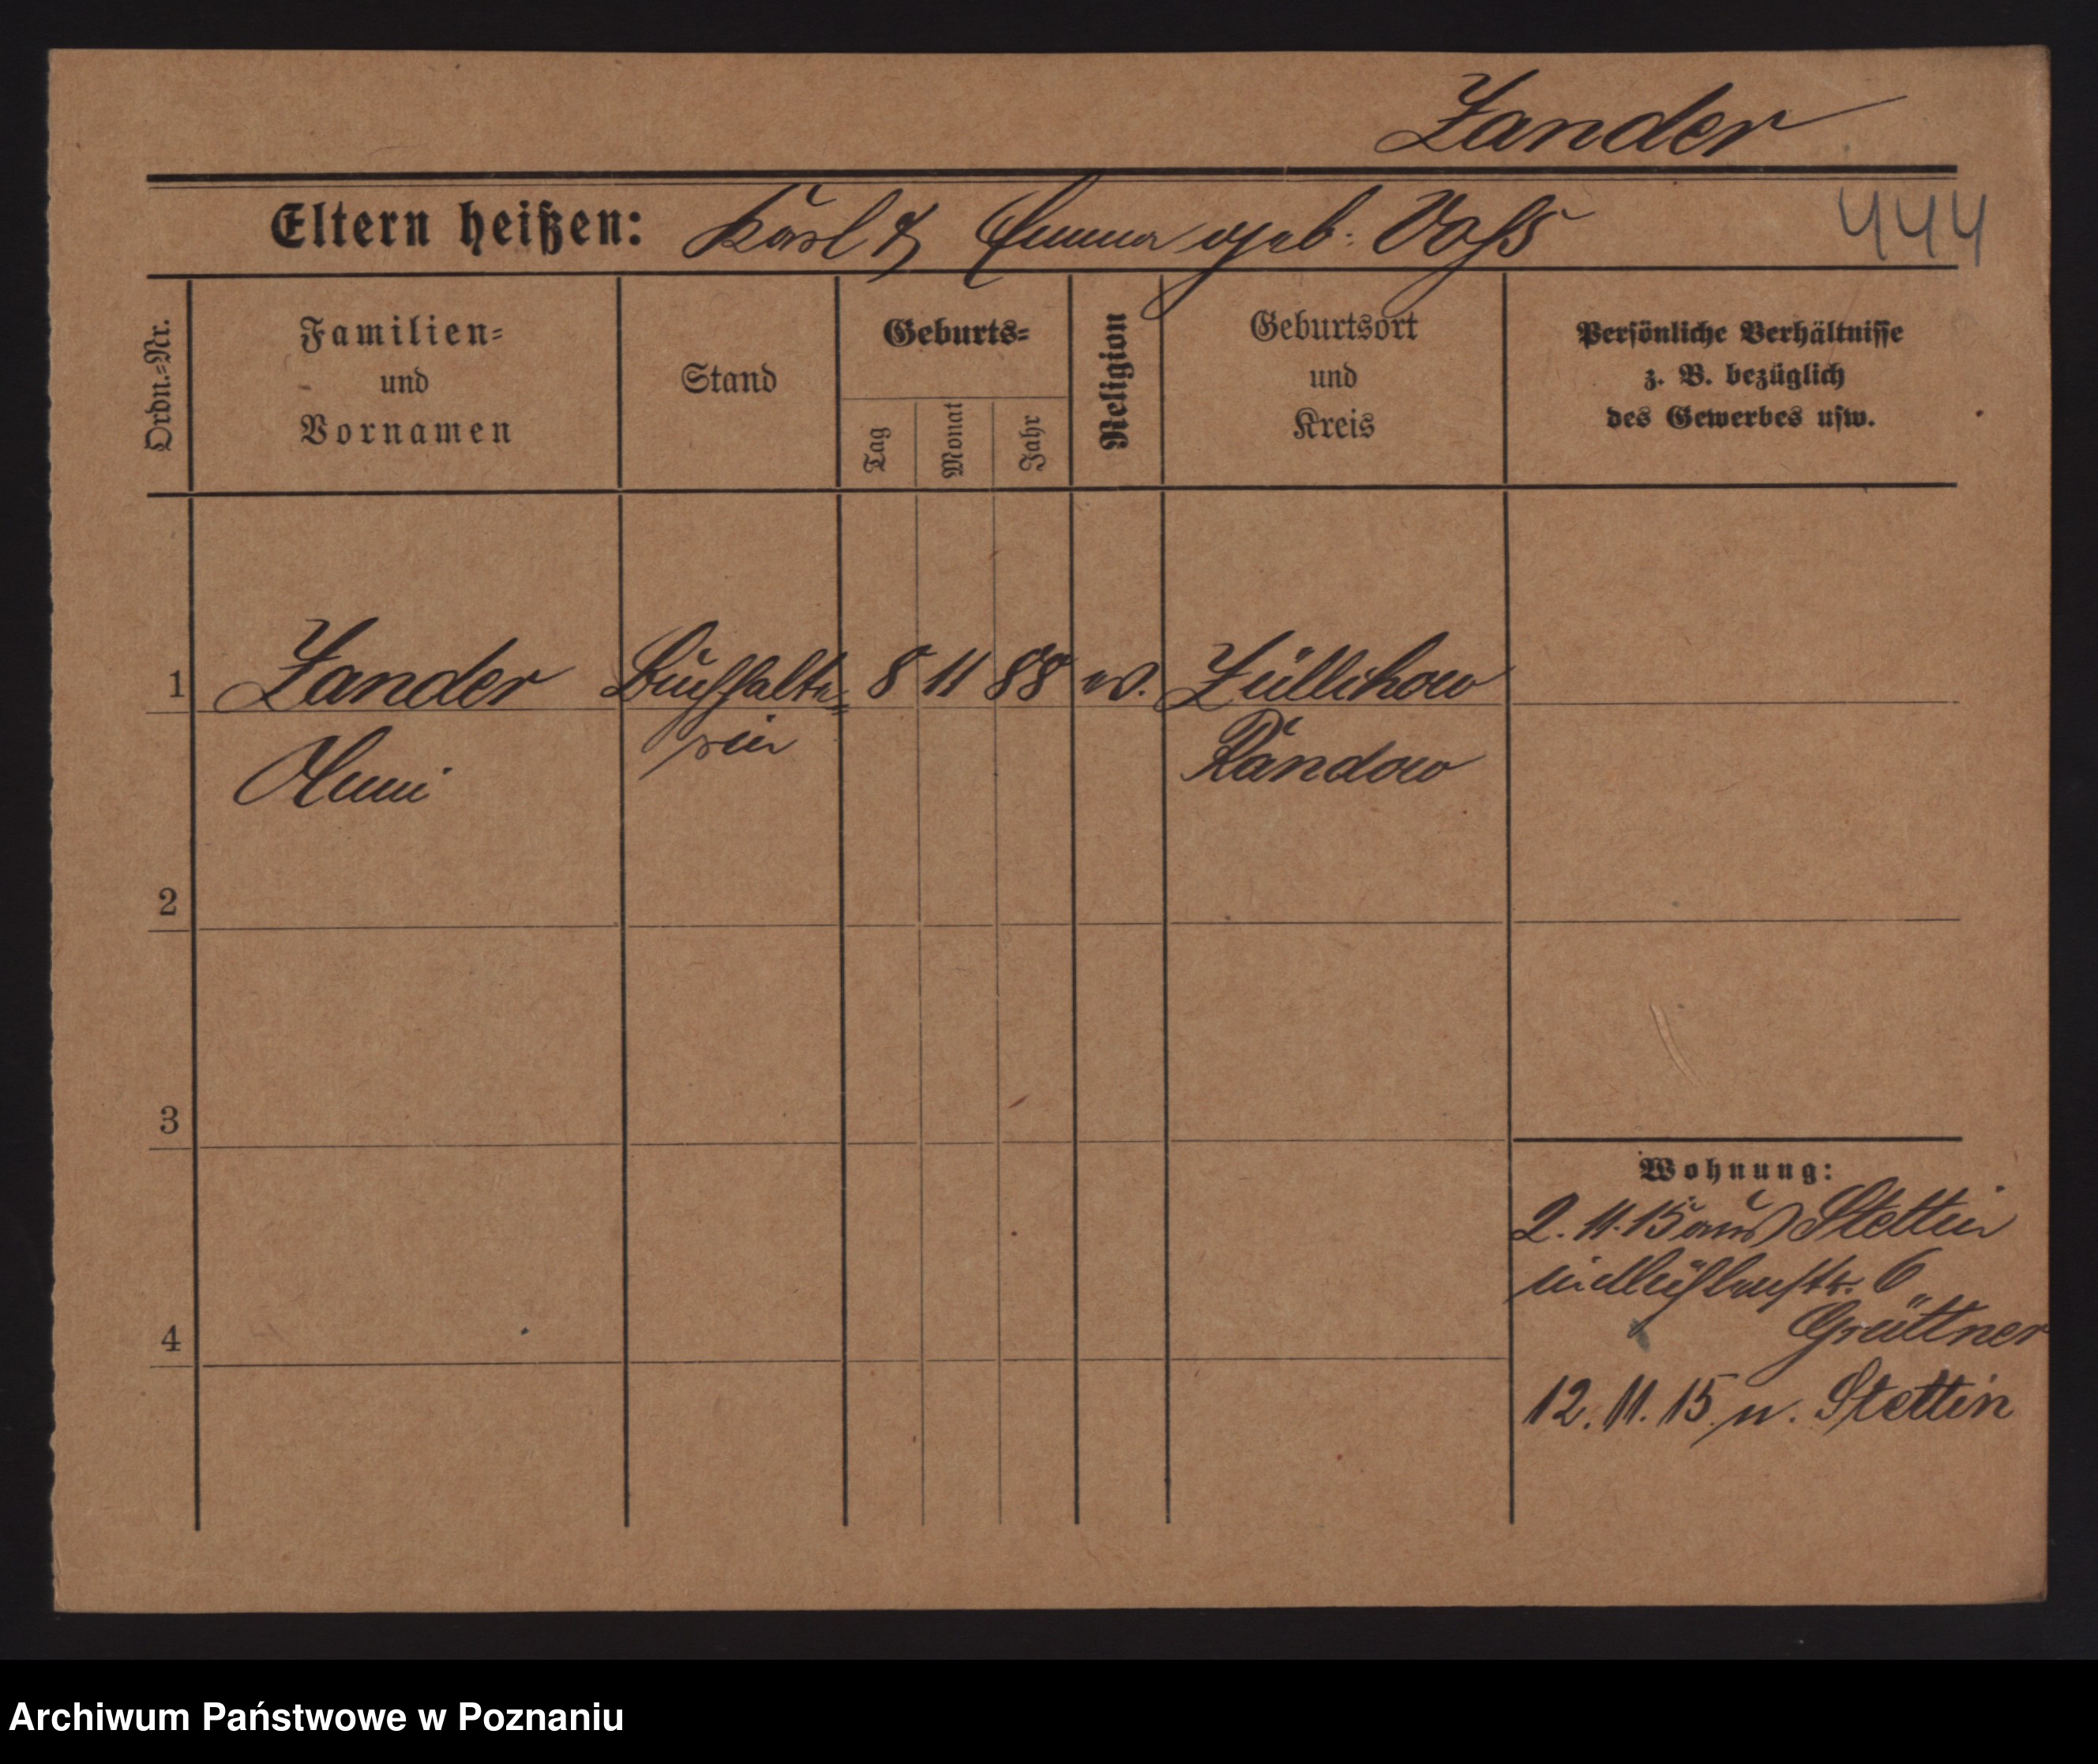 Zander
Eltern heißen: Karl & Emma geb. Voß
444
Ordn.=Nr.
Familien=
und
Vornamen
Stand
Geburts=
Tag
Monat
Jahr
Religion
Geburtsort
und
Kreis
Persönliche Verhältnisse
z. B. bezüglich
des Gewerbes usw.
1 Zander Buchhalte= 8 11 88 Züllchow
Anni rin Randow
2
3
4
Wohnung:
2. 11. 15 aus Stettin
Mühlenstr. 6
Grüttner
12. 11. 15 n. Stettin
Archiwum Państwowe w Poznaniu